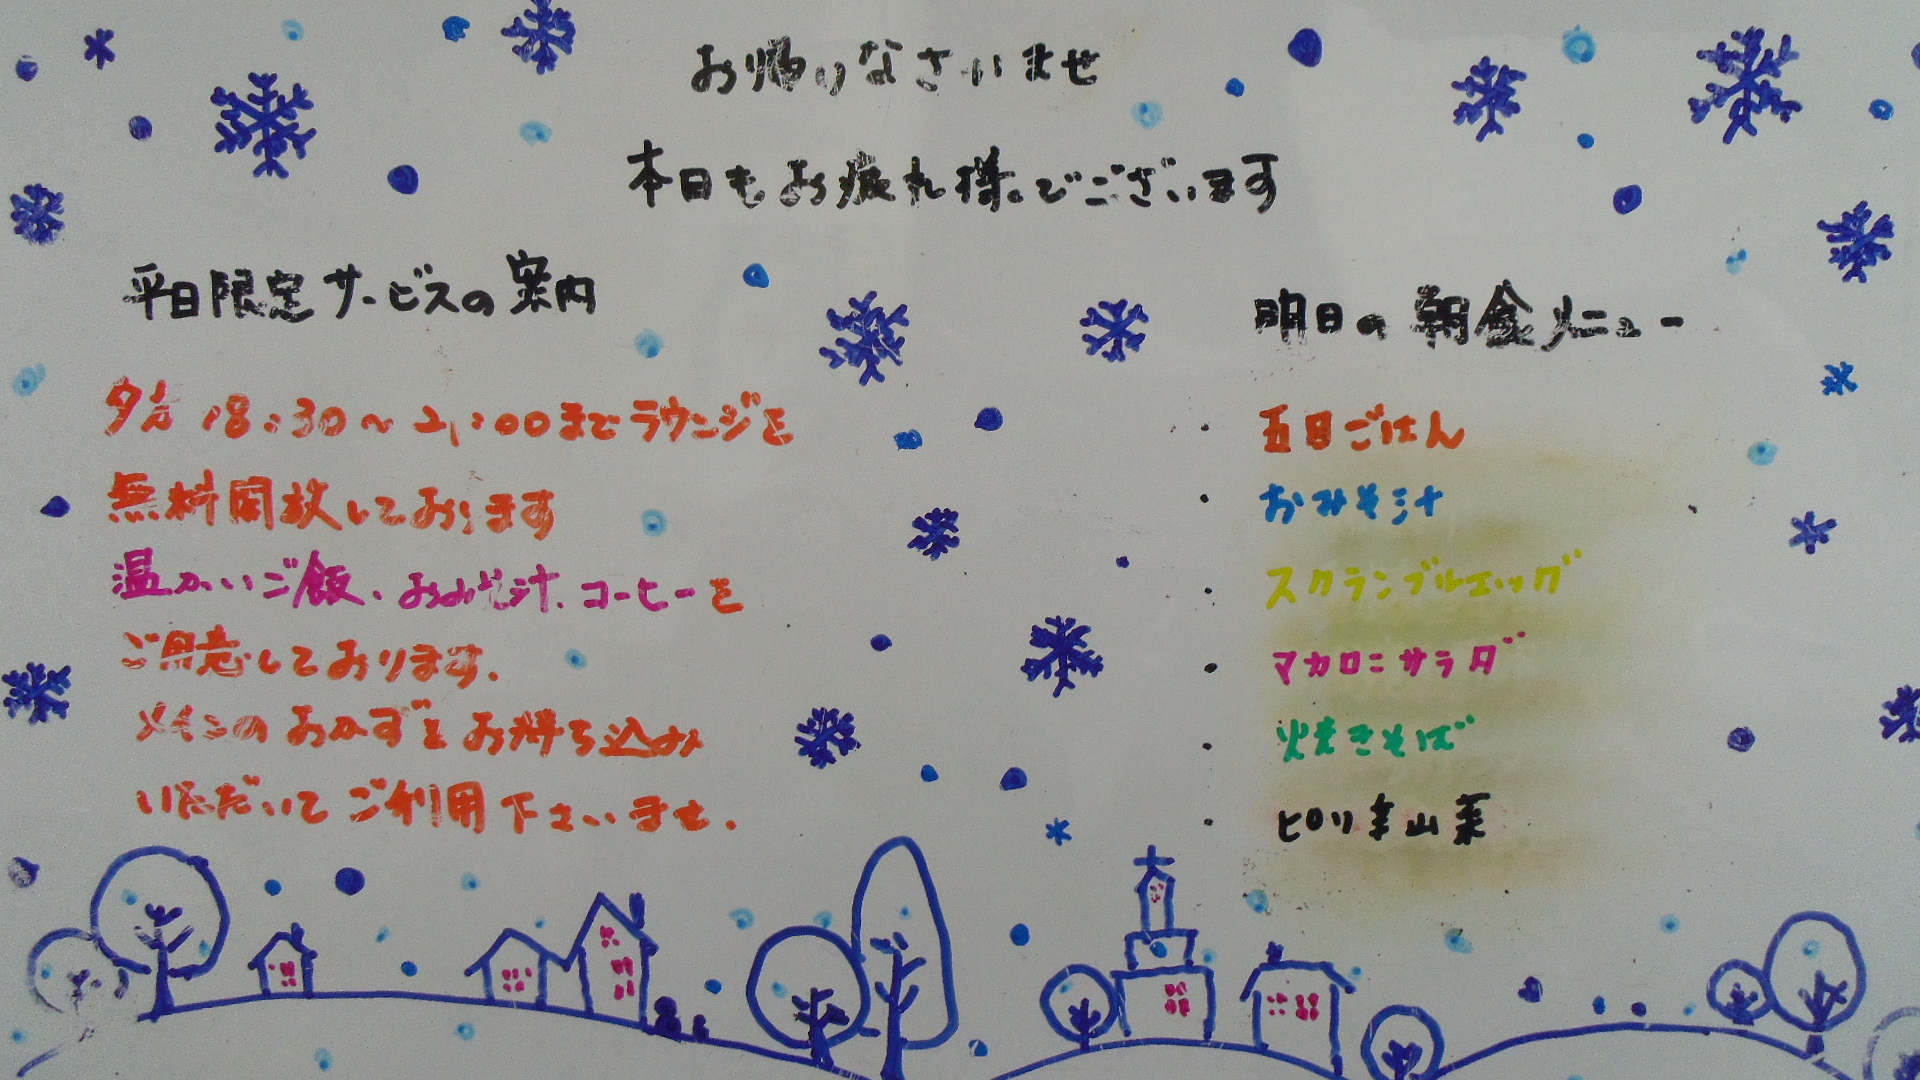 お帰りなさいませ
本日もお疲れ様でございます
平日限定サービスの案内
夕方18:30〜21:00までラウンジを
無料開放しております
温かいご飯、おみそ汁、コーヒーを
ご用意しております.
メインのおかずをお持ち込み
いただいてご利用下さいませ.
明日の朝食メニュー
・五目ごはん
・おみそ汁
・スクランブルエッグ
・マカロニサラダ
・焼きそば
・ピリ辛山菜